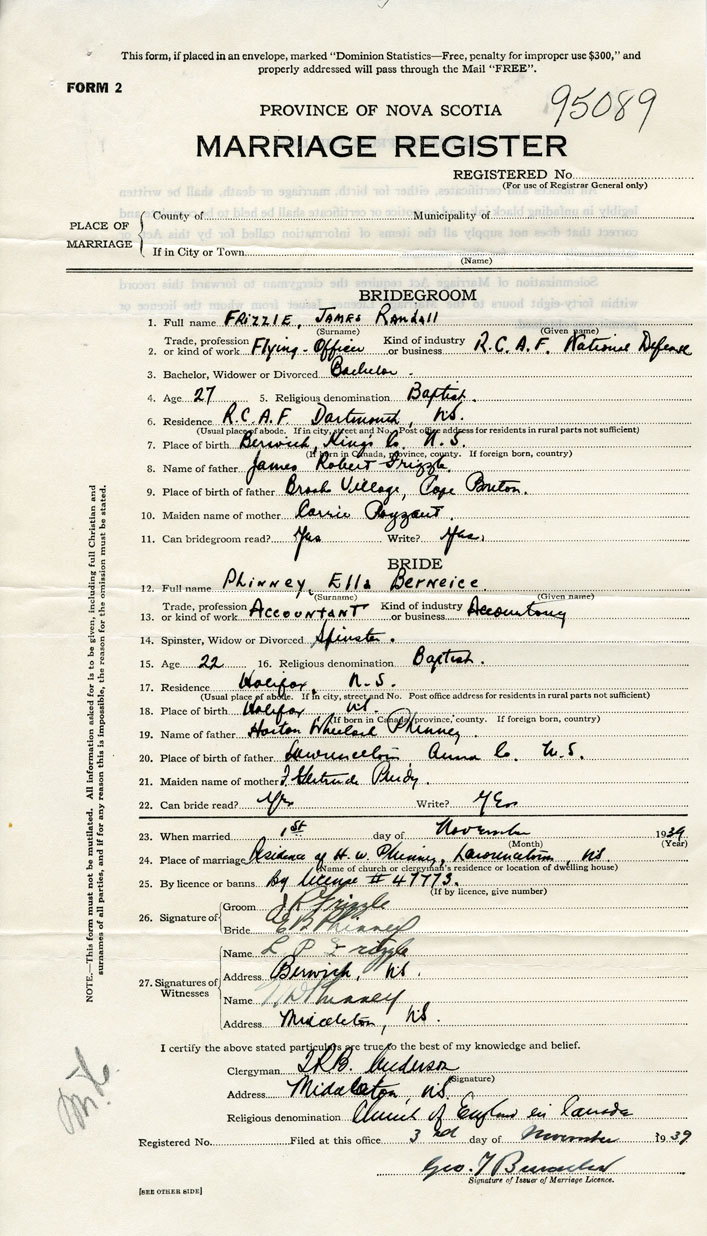 This form, if placed in an envelope, marked "Dominion Statistics—Free, penalty for improper use $300," and
properly addressed will pass through the Mail "FREE".
FORM 2
95089
PROVINCE OF NOVA SCOTIA
MARRIAGE REGISTER
REGISTERED No.
(For use of Registrar General only)
PLACE OF MARRIAGE
County of Municipality of
If in City or Town
(Name)
BRIDEGROOM
1. Full name FRIZZLE, JAMES Randall
(Surname) (Given name)
2. Trade, profession or kind of work Flying-Officer Kind of industry or business R.C.A.F. National Defense
3. Bachelor, Widower or Divorced Bachelor.
4. Age 27 5. Religious denomination Baptist.
6. Residence R.C.A.F. Dartmouth, N.S.
(Usual place of abode. If in city, street and No. Post office address for residents in rural parts not sufficient)
7. Place of birth Berwick, King's Co. N.S.
(If born in Canada, province, county. If foreign born, country)
8. Name of father James Robert Frizzle.
9. Place of birth of father Brook Village, Cape Breton.
10. Maiden name of mother Carrie Payzant.
11. Can bridegroom read? Yes Write? Yes.
BRIDE
12. Full name Phinney, Ella Berneice
(Surname) (Given name)
13. Trade, profession or kind of work ACCOUNTANT Kind of industry or business Accountancy
14. Spinster, Widow or Divorced Spinster.
15. Age 22 16. Religious denomination Baptist.
17. Residence Halifax, N.S.
(Usual place of abode. If in city, street and No. Post office address for residents in rural parts not sufficient)
18. Place of birth Halifax N.S.
(If born in Canada, province, county. If foreign born, country)
19. Name of father Horton Phinney
20. Place of birth of father Lawrencetown Anna Co. N.S.
21. Maiden name of mother Gertrude Purdy.
22. Can bride read? Yes Write? Yes
23. When married 1st day of November 1939
(Month) (Year)
24. Place of marriage Residence of H. W. Phinney, Lawrencetown, N.S.
(Name of church or clergyman's residence or location of dwelling house)
25. By licence or banns By license # 47773.
(If by licence, give number)
26. Signature of
Groom J R Frizzle
Bride E B Phinney
27. Signatures of Witnesses
Name L P Frizzle
Address Berwick, N.S.
Name Phinney
Address Middleton, N.S.
I certify the above stated particulars are true to the best of my knowledge and belief.
Clergyman Anderson
(Signature)
Address Middleton, N.S.
Religious denomination Church of England in Canada
Registered No. Filed at this office 3rd day of November 1939
Geo. T
Signature of Issuer of Marriage Licence.
[SEE OTHER SIDE]
NOTE.—This form must not be mutilated. All information asked for is to be given, including full Christian and
surnames of all parties, and if for any reason this is impossible, the reason for the omission must be stated.